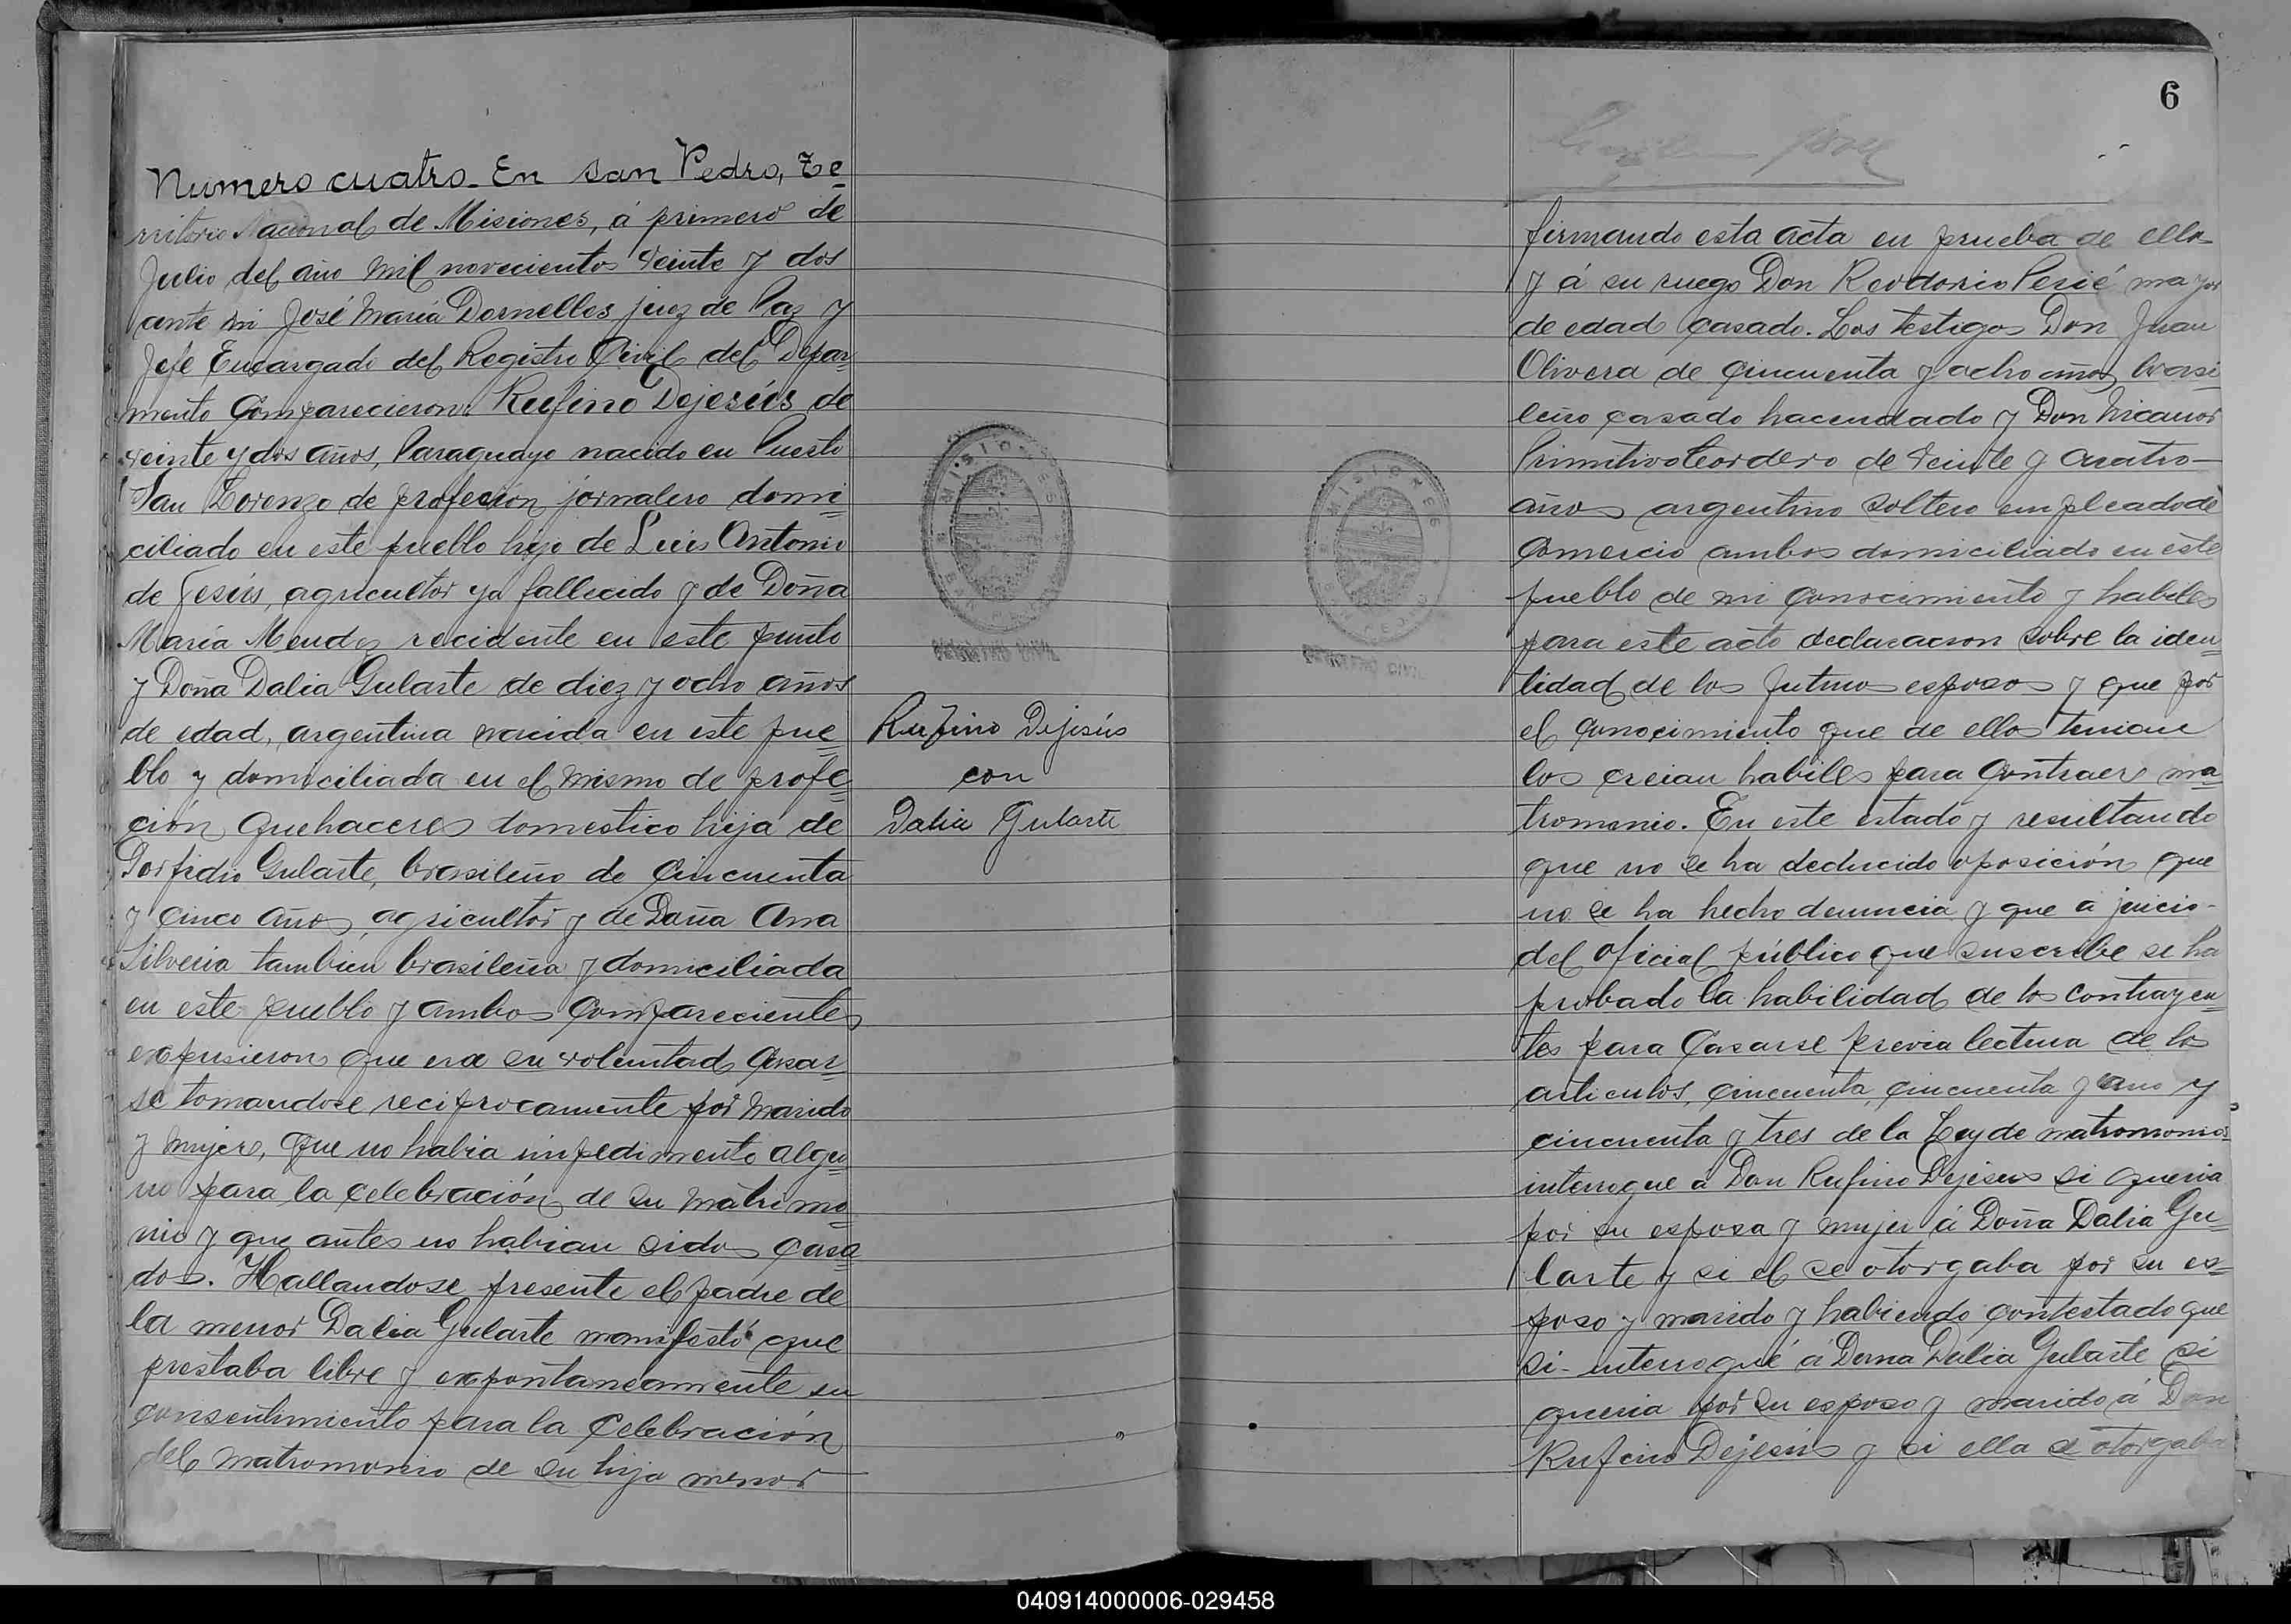 Numero cuatro. En San Pedro, Te-
rritorio Nacional de Misiones, á primero de
Julio del año mil novecientos veinte y dos
ante mi José María Dornelles juez de Paz y
Jefe Encargado del Registro Civil del Depar-
mento Comparecieron: Rufino Dejesús de
veinte y dos años, Paraguayo nacido en Puesto
San Lorenzo de profesion jornalero domi-
ciliado en este pueblo hijo de Luis Antonio
de Jesús, agricultor ya fallecido y de Doña
María Mendez recidente en este punto
y Doña Dalia Gularte de diez y ocho años
de edad, argentina nacida en este pue-
blo y domiciliada en el mismo de profe-
ción quehaceres domestico hija de
Porfidio Gularte, brasileño de Cincuenta
y Cinco años, agricultor y de Doña Ana
Silveria tambien brasileña y domiciliada
en este pueblo y ambos Comparecientes
expusieron que era su voluntad Casar-
se tomandose reciprocamente por Marido
y Mujer, que no habia impedimento algu-
no para la Celebración de su Matrimo-
nio y que antes no habian sidos Casa-
dos. Hallandose presente el padre de
la menor Dalia Gularte manifestó que
prestaba libre y expontaneamente su
consentimiento para la Celebración
del Matromonio de su hija menor
Rufino Dejesús
con
Dalia Gularte
MISIONES
REGISTRO CIVIL
MISIONES
REGISTRO CIVIL
6
firmando esta acta en prueba de ello
y á su ruego Don Perié mayor
de edad Casado. Los testigos Don Juan
Olivera de Cincuenta y ocho años brasi-
leño casado hacendado y Don Nicanor
Primitivo Cordero de veinte y cuatro
años argentino soltero empleado de
Comercio ambos domiciliado en éste
pueblo de mi Conocimiento y habiles
para este acto declararon sobre la iden-
tidad de los futuros esposos y que por
el Conocimiento que de ellos tenian
los creian habiles para Contraer ma-
tromonio. En este estado y resultando
que no se ha deducido oposición que
no se ha hecho denuncia y que a juicio
del oficial público que suscribe se ha
probado la habilidad de los contrayen-
tes para Casarse previa lectura de los
articulos, cincuenta, cincuenta y uno y
cincuenta y tres de la Ley de matromonio
interrogue a Don Rufino Dejesus si queria
por su esposa y mujer á Doña Dalia Gu-
larte y si el se otorgaba por su es-
poso y marido y habiendo Contestado que
si- interrogué á Dorna Dalia Gularte si
queria por su esposo y marido á Don
Rufino Dejesús y si ella se otorgaba
040914000006-029458